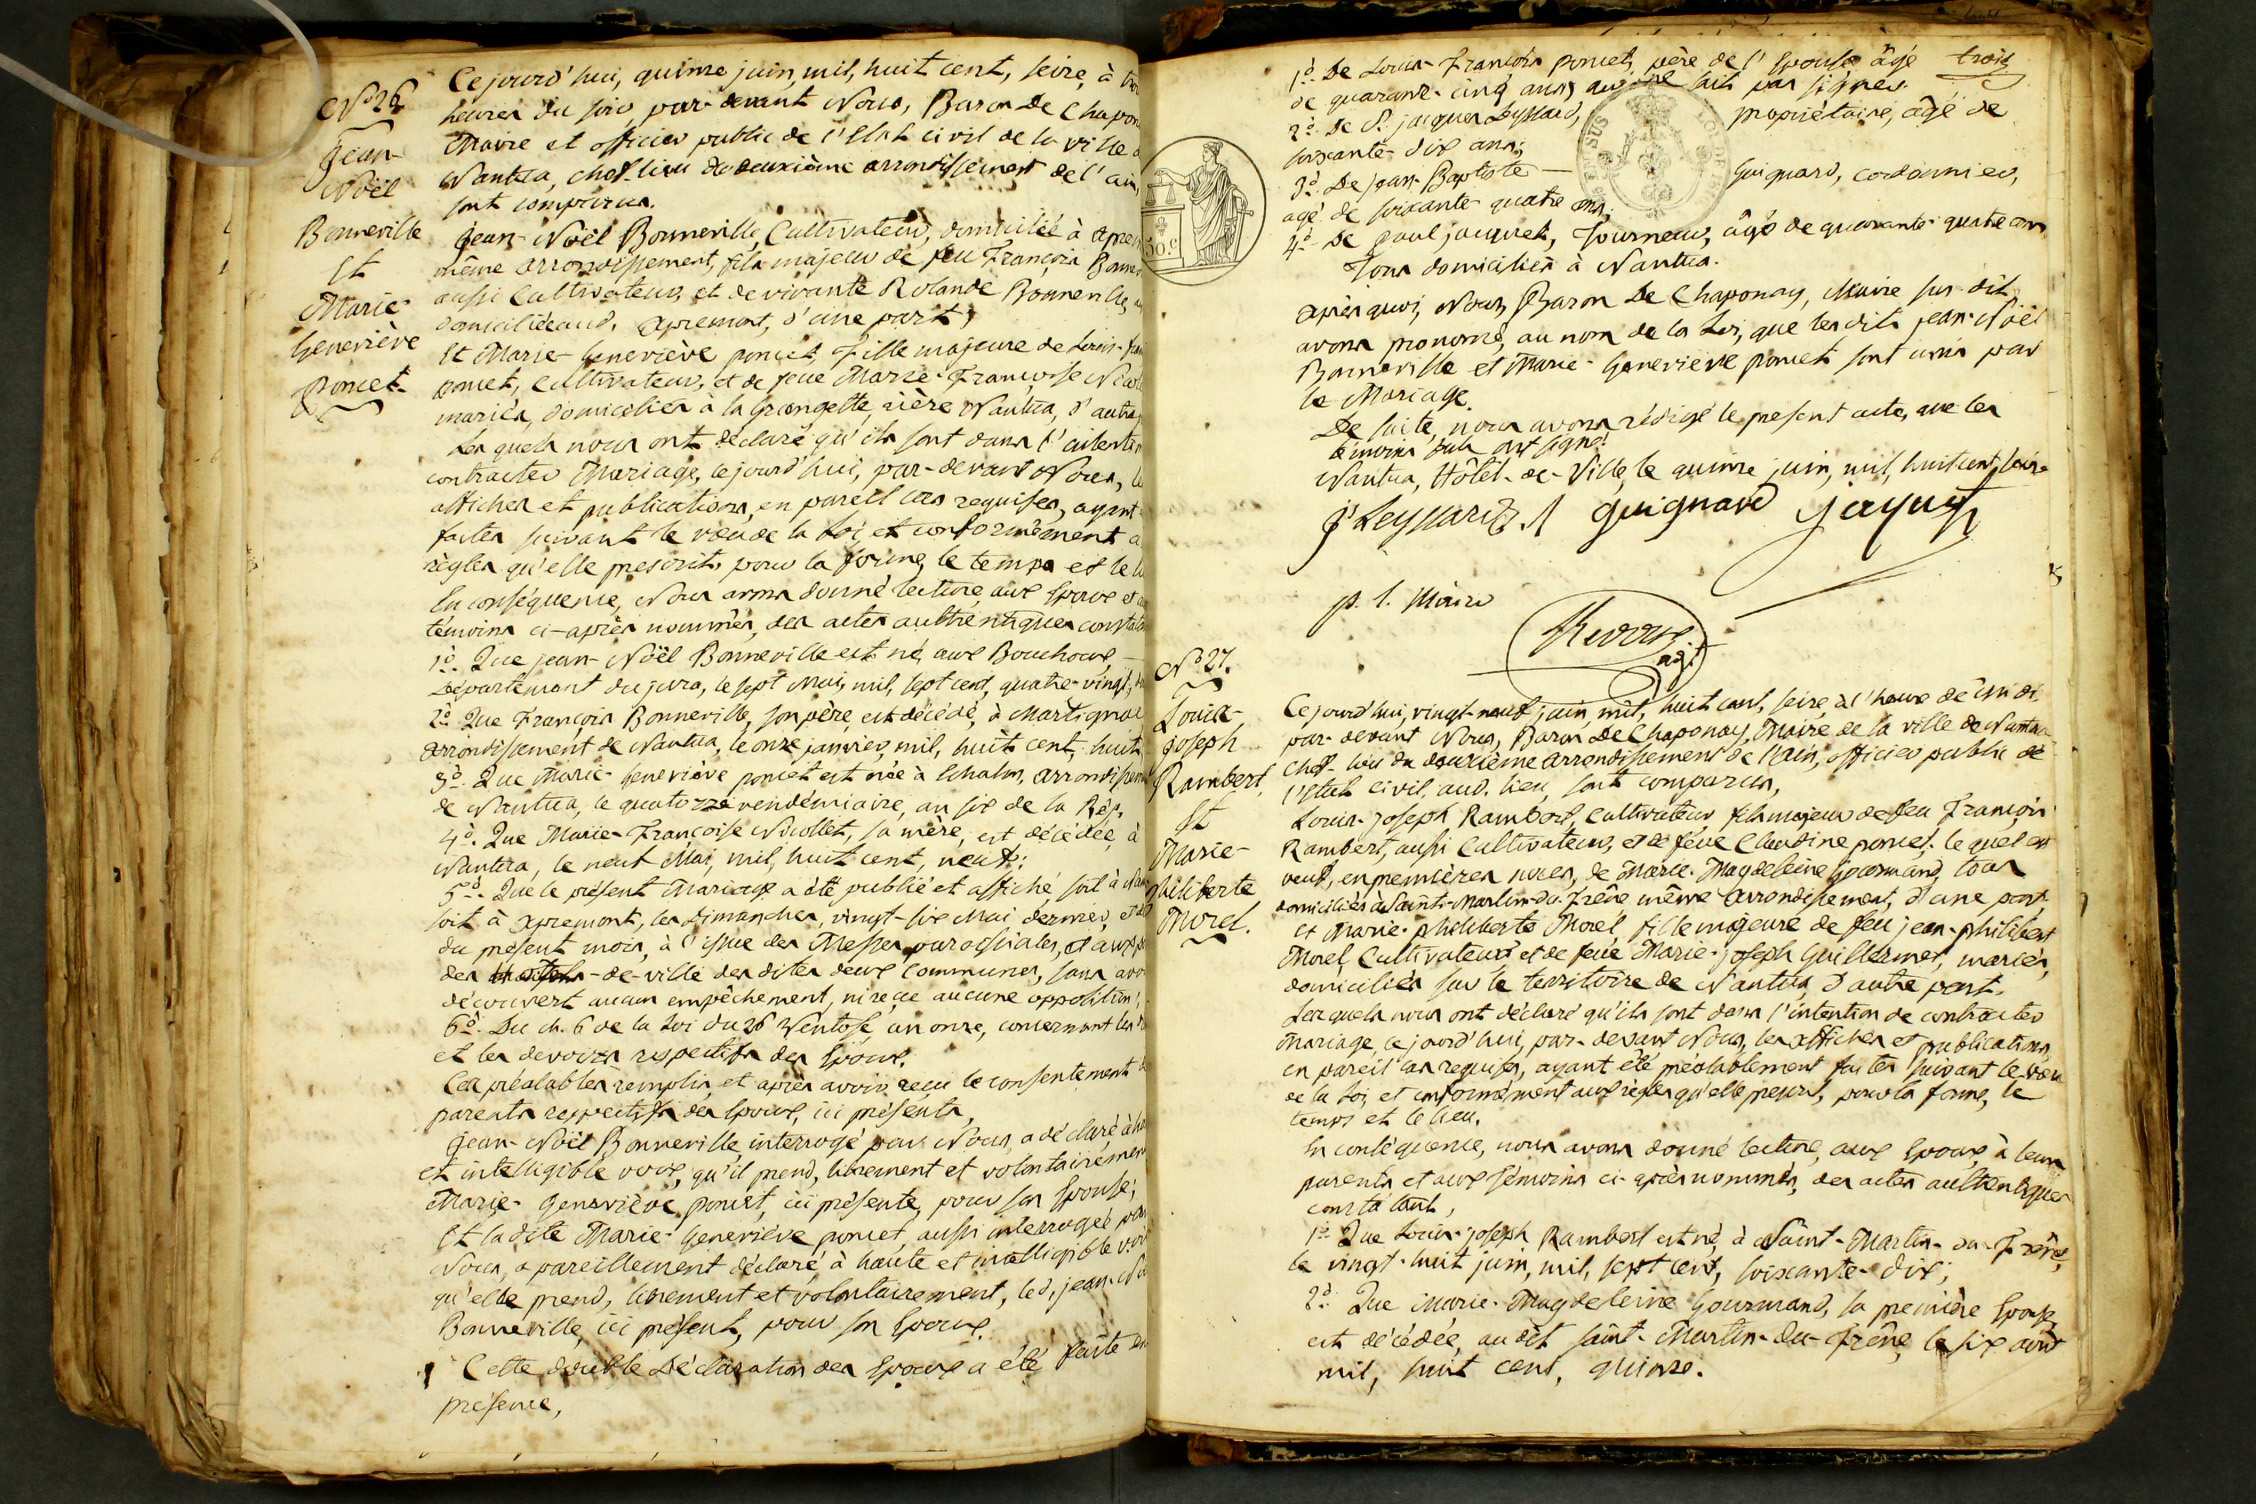 N.º 26
Jean-
Noël
Bonneville
Et
Marie-
Geneviève
poncet
Cejourd'hui, quinze juin, mil, huit cent, seize, à
heures du soir, par-devant Nous, Baron De Chapon
Maire et officier public de l'Etat civil de la ville
Nantua, chef-lieu du deuxième arrondissement de l'ain,
sont comparus.
Jean-Noël Bonneville, Cultivateur, domicilié à apre
même arrondissement, fils majeur de feu François Bonne
aussi Cultivateur, et de vivante Rolande Bonneville,
domiciliée aud. apremont, d'une part;
Et Marie-Geneviève poncet fille majeure de Louis-
poncet, Cultivateur, et de feue Marie-Françoise
mariés, domiciliés à la Grangette, rière Nantua, d'autre
Les quels nous ont déclaré qu'ils sont dans l'intention
contracter Mariage, cejourd'hui, par-devant Nous,
affiches et publications, en pareil cas requises, ayant
faites suivant le vœu de la Loi, et conformément
règles qu'elle prescrit, pour la forme, le temps et le
En conséquence, Nous avons donné lecture, aux Epoux et
témoins ci-après nommés, des actes authentiques
1º. Que jean-Noël Bonneville est né, aux Bouchoux,
Département du jura, le sept Mai, mil, sept cent, quatre-vingt,
2º. Que François Bonneville, son père, est décédé, à Martignat
arrondissement de Nantua, le onze janvier, mil, huit cent, huit
3º. Que Marie-Geneviève poncet est née à Echalon, arrondissement
de Nantua, le quatorze vendémiaire, an six de la Rép.
4º. Que Marie-Françoise Nicollet, sa mère, est décédée, à
Nantua, le neuf Mai, mil, huit cent, neuf;
5º. Que le présent Mariage a été publié et affiché, soit à
soit à apremont, les Dimanches, vingt-six Mai dernier, et
du présent mois, à l'issue des Messes paroissiales, et aux
des -de-ville des dites deux communes, sans avoir
découvert aucun empêchement, ni reçu aucune opposition;
6º. Du ch. 6 de la Loi du 26 Ventôse, an onze, concernant les
et les devoirs respectifs des Epoux.
Ces préalables remplis, et après avoir reçu le consentement
parents respectifs des Epoux, ici présents,
Jean-Noël Bonneville, interrogé par Nous, a déclaré à
et intelligible voix, qu'il prend, librement et volontairement
Marie-Geneviève poncet, ici présente, pour son Epouse;
Et ladite Marie-Geneviève poncet, aussi interrogée par
Nous, a pareillement déclaré, à haute et intelligible
qu'elle prend, librement et volontairement, led. jean-
Bonneville, ici présent, pour son Epoux.
Cette double Déclaration des Epoux a été faite
présence,
trois
1º. De Louis-François poncet, père de l'Epouse âgé
de quarante-cinq ans,
2º. De S.r jacques Leyssard, propriétaire, âgé de
soixante-dix ans;
3º. De jean-Baptiste — Guignard, cordonnier,
agé de soixante-quatre ans;
4º. De paul jacquet, Tourneur, âgé de quarante-quatre ans
Tous domiciliés à Nantua.
Après quoi, Nous, Baron De Chaponay, Maire sus-dit,
avons prononcé, au nom de la Loi, que lesdits jean-Noël
Bonneville et Marie-Geneviève poncet sont unis par
le Mariage.
De suite, nous avons rédigé le présent acte, que les
témoins ont signé.
Nantua, Hôtel-de-Ville, le quinze juin, mil, huit cent, seize
J Leyssard guignard Jaquet
p. l. Maire
adj.t
N.º 27.
Louis-
Joseph
Rambert,
Et
Marie-
philiberte
Morel.
Cejourd'hui, vingt-neuf juin, mil, huit cent, seize, à l'heure de midi,
par-devant Nous, Baron De Chaponay, Maire de la ville de Nantua
chef-lieu du deuxième arrondissement de l'Ain, officier public de
l'Etat civil, aud. lieu, sont comparus,
Louis-joseph Rambert, Cultivateur, fils majeur de feu François
Rambert, aussi Cultivateur, et de feue Claudine poncet, le quel est
veuf, en premières noces, de Marie-Magdeleine Gourmand, tous
domiciliés à Saint-Martin-du-Frêne, même arrondissement, d'une part
et Marie-philiberte Morel, fille majeure de feu jean-philibert
Morel, Cultivateur et de feue Marie-joseph Guillermet, mariés,
domiciliés sur le territoire de Nantua, d'autre part.
Les quels nous ont déclaré qu'ils sont dans l'intention de contracter
Mariage, cejourd'hui, par-devant Nous, les affiches et publications,
en pareil cas requises, ayant été préalablement faites suivant le vœu
de la Loi, et conformément aux règles qu'elle prescrit, pour la forme, le
temps et le lieu.
En conséquence, nous avons donné lecture, aux Epoux, à leurs
parents et aux témoins ci-après nommés, des actes authentiques
constatant,
1º. Que Louis-joseph Rambert est né, à Saint-Martin-du-Frêne,
le vingt-huit juin, mil, sept cent, soixante-dix;
2º. Que Marie-Magdeleine Gourmand, sa première Epouse,
est décédée, audit Saint-Martin-du-Frêne, le six août
mil, huit cent, quinze.